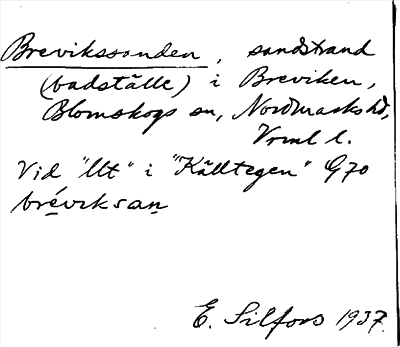 Brevikssanden, sandstrand
(badställe) i Breviken,
Blomskogs sn, Nordmarks hd,
Vrml l.
Vid "llt" i "Källtegen" G70
bréviksan
E. Silfors 1937.